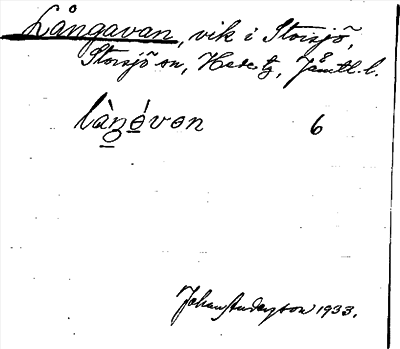 Långavan, vik i Storsjö,
Storsjö sn, Hede tg, Jämtl. l.
làṉgó̱von 6
Johan Anderzson 1933.